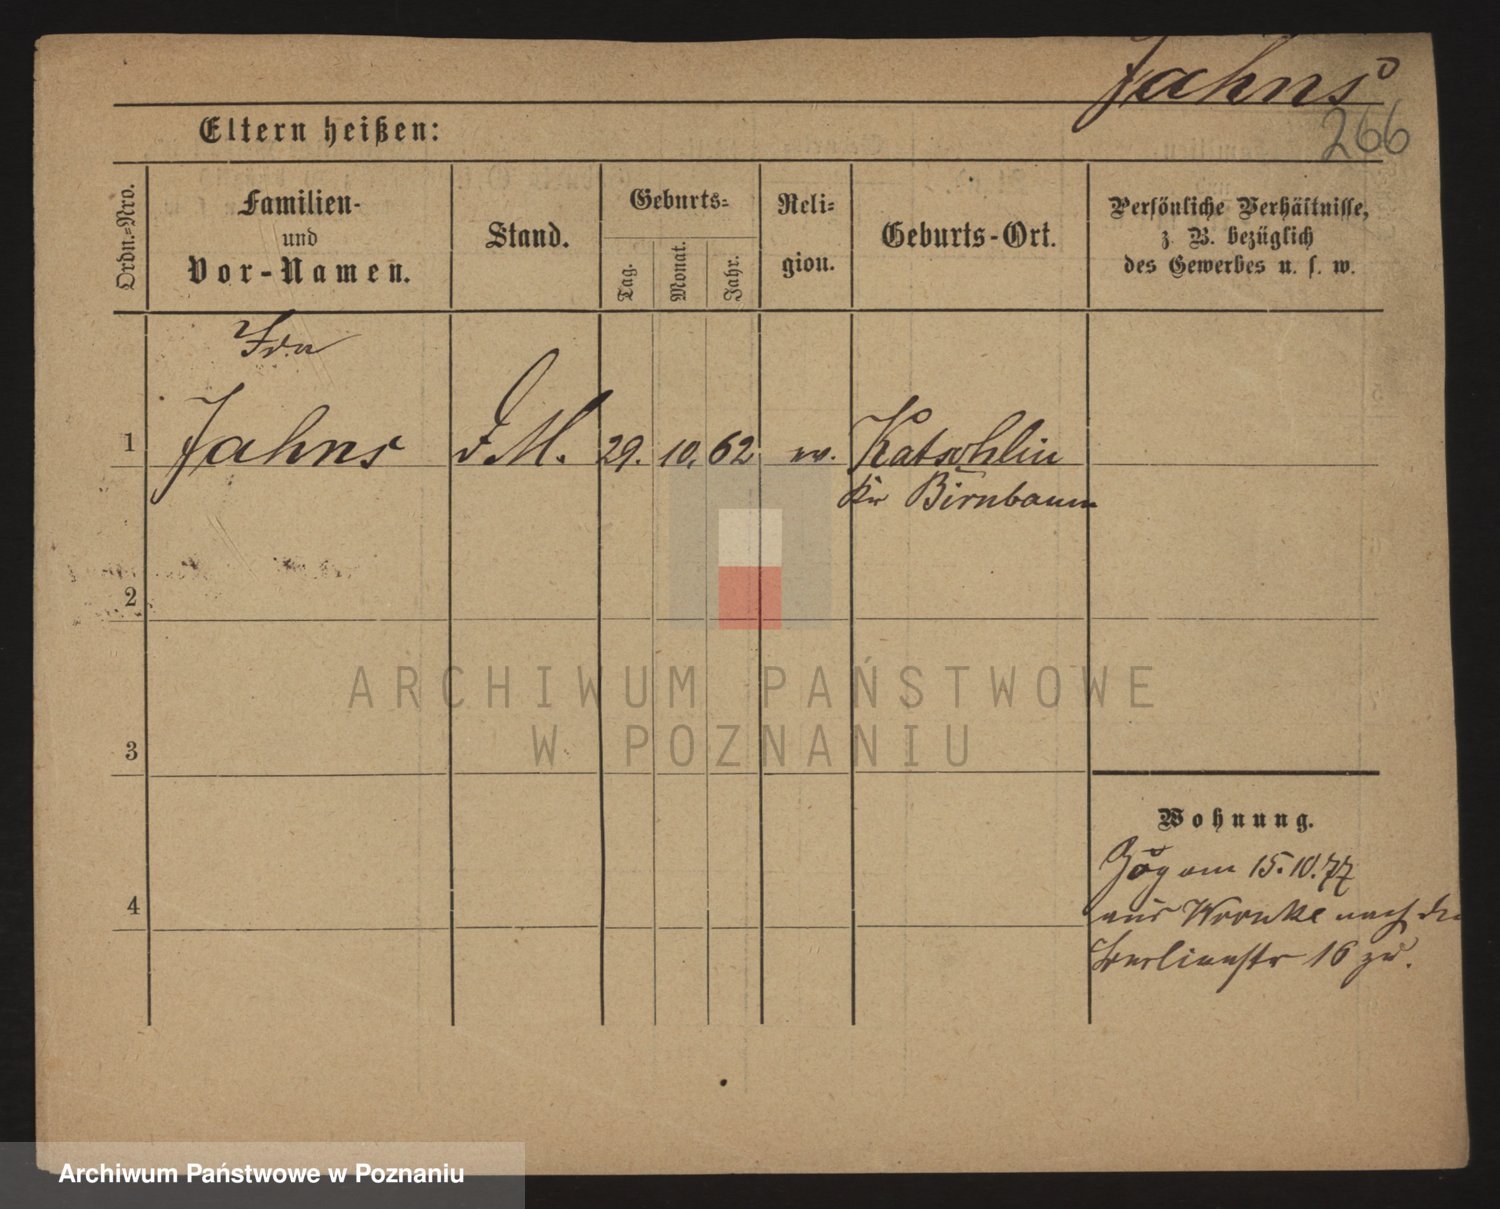 Jahns
266
Eltern heißen:
Ordn.=Nro.
Familien-
und
Vor-Namen.
Stand.
Geburts=
Tag.
Monat.
Jahr.
Reli-
gion.
Geburts-Ort.
Persönliche Verhältnisse,
z. B. bezüglich
des Gewerbes u. s. w.
Ida
1 Jahns D.M. 29. 10. 62 ev. Katschlin
Kr Birnbaum
2
3
4
Wohnung.
Zog am 15.10.77
aus Wronke nach der
Berlinerstr 16 zu.
ARCHIWUM PAŃSTWOWE
W POZNANIU
Archiwum Państwowe w Poznaniu